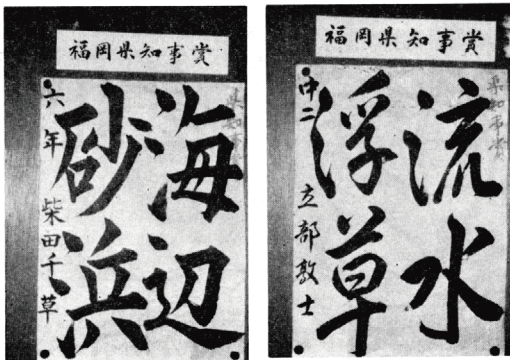 福岡県知事賞
海辺
砂浜
六年 柴田千草
福岡県知事賞
流水
浮草
中二 立部敦士
県知事賞